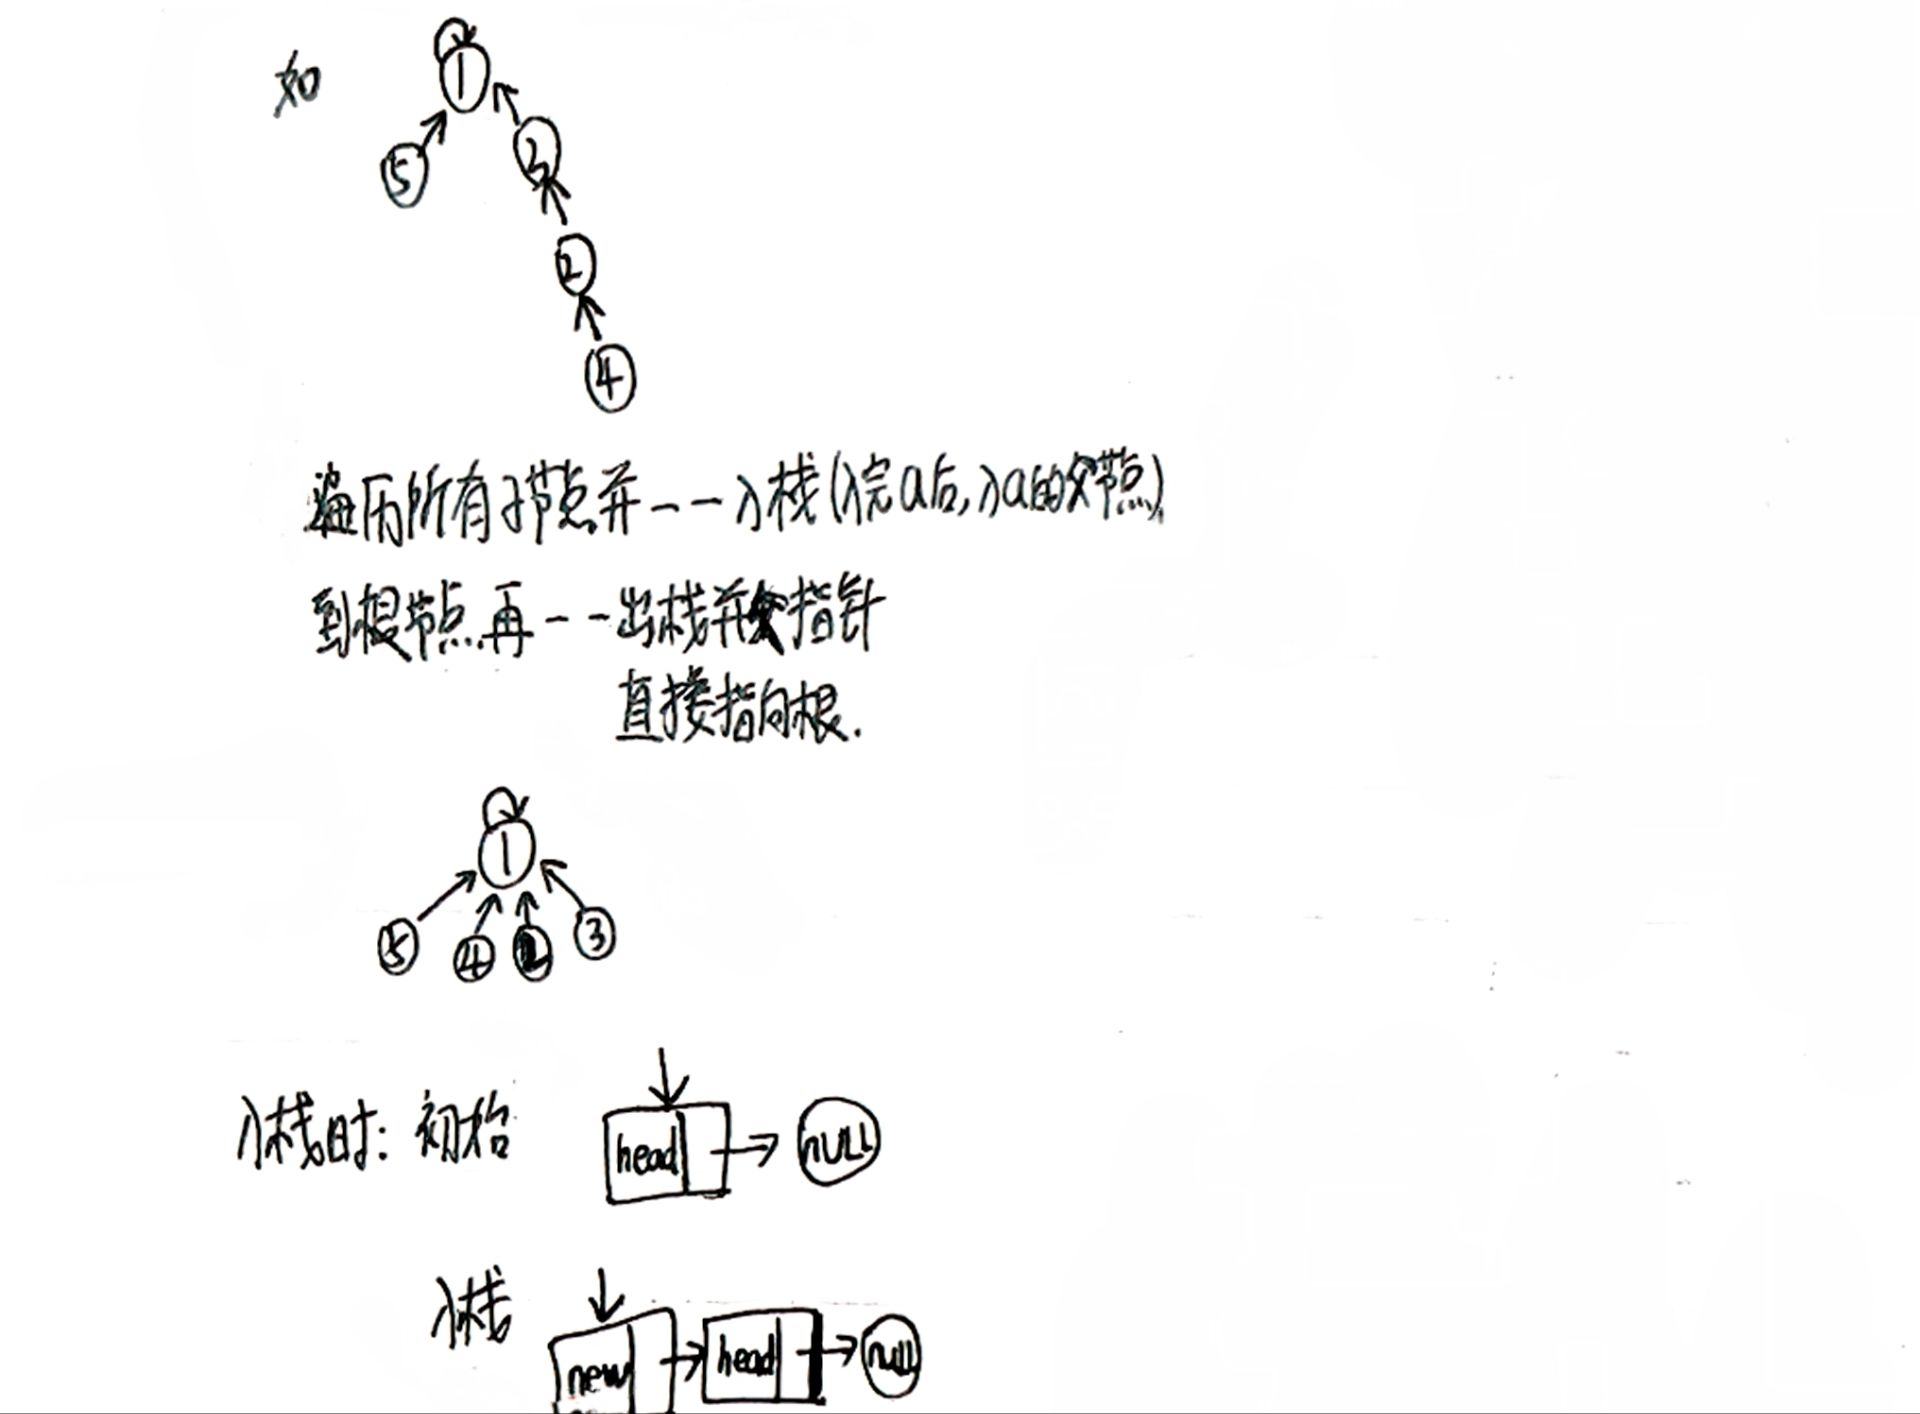 如
1
5
3
2
4
遍历所有子节点并一一入栈(入完a后,入a的父节点)
到根节点再一一出栈并令指针
直接指向根.
1
5 4 2 3
入栈时: 初始 head nULL
入栈 new head null